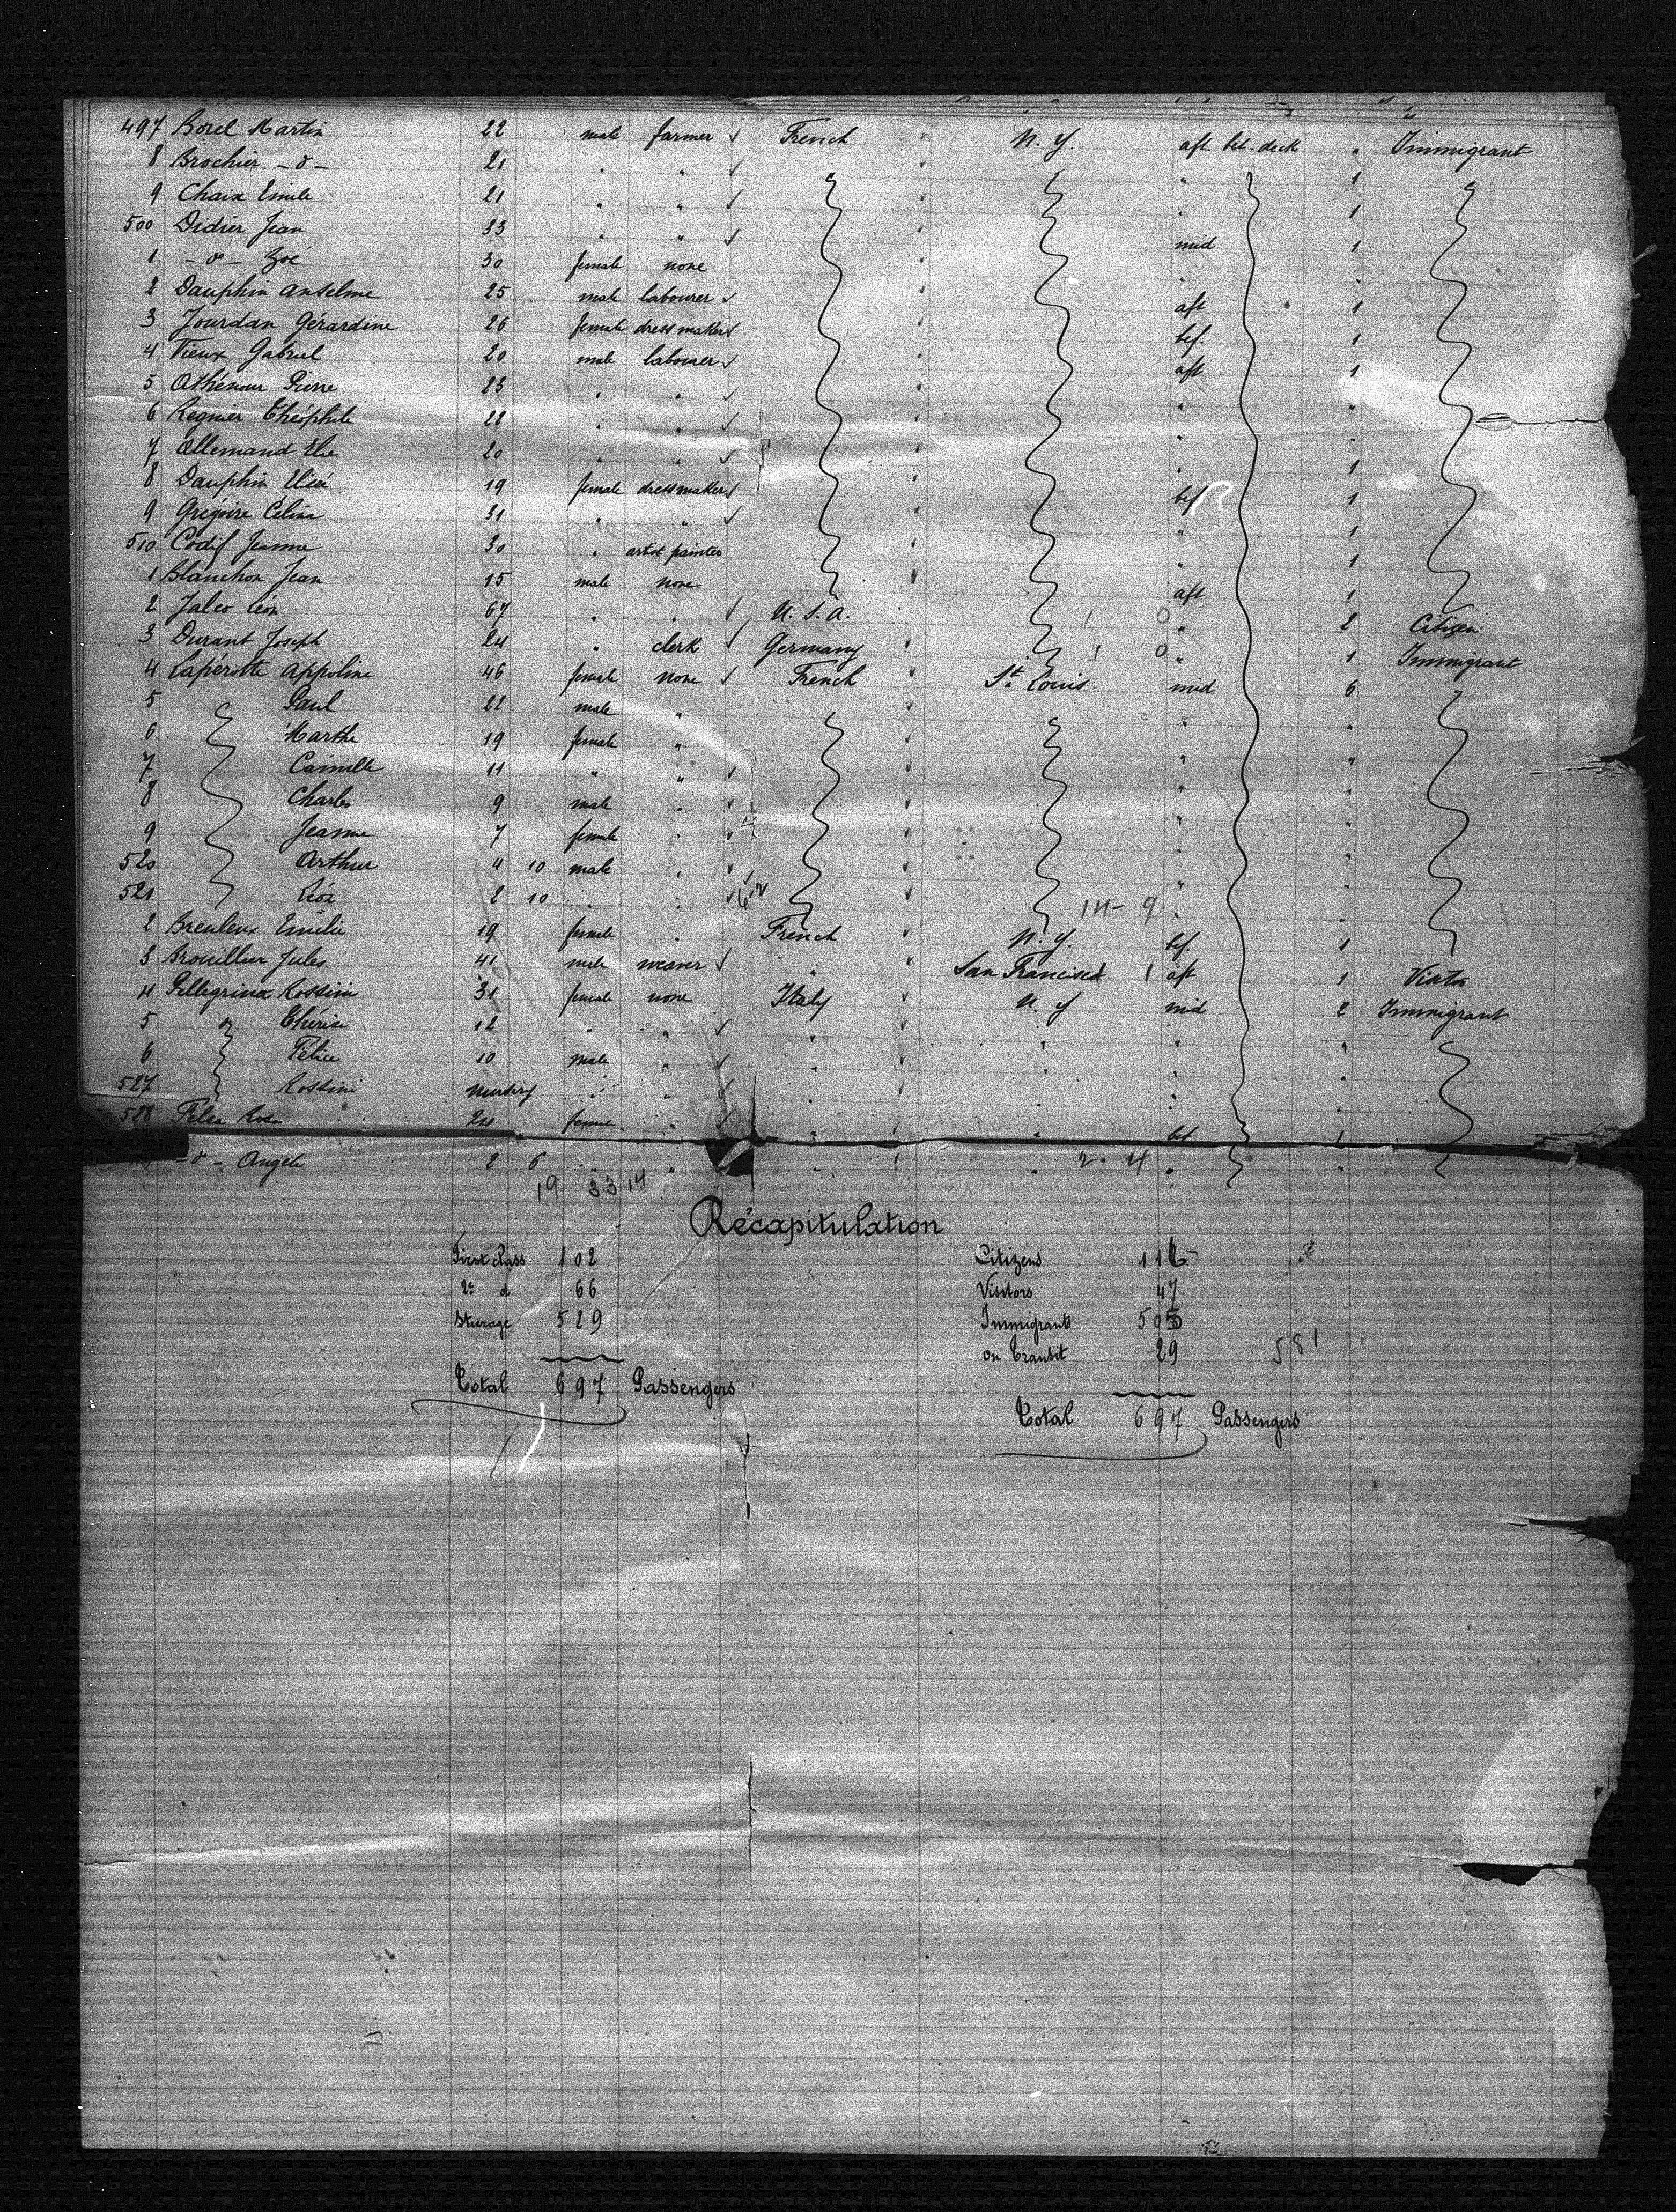 497 Borel Martin 22 male farmer ✓ French " N. Y. aft. bet. deck " Immigrant
8 Brochier - d° - 21 " " ✓ " " 1
9 Chaix Emile 21 " " ✓ " " 1
500 Didier Jean 33 " " ✓ " mid 1
1 - d° - Zoé 30 female none " " "
2 Dauphin Anselme 25 male labourer ✓ " aft 1
3 Jourdan Gérardine 26 female dressmaker ✓ " bef. 1
4 Vieux Gabriel 20 male labourer ✓ " aft 1
5 Athénour Pierre 23 " " ✓ " " "
6 Regnier Théophile 22 " " ✓ " " "
7 Allemand Elie 20 " " ✓ " " 1
8 Dauphin 19 female dressmaker ✓ " bef 1
9 Grégoire Célina 31 " " ✓ " " 1
510 Codif Jeanne 30 " artist painter " " 1
1 Blanchon Jean 15 male none ✓ aft 1
2 Léon 67 " " ✓ U. S. A. " 2 Citizen
3 Durant Joseph 24 " clerk ✓ Germany ✓ " 1 Immigrant
4 Laperotte Appoline 46 female none ✓ French ✓ St. Louis mid 6
5 Paul 22 male " ✓ " "
6 Marthe 19 female " ✓ " "
7 Camille 11 " " ✓ ✓ " "
8 Charles 9 male " ✓ ✓ " "
9 Jeanne 7 female " ✓ ✓ " "
520 Arthur 4 10 male " ✓ ✓ " "
521 Léon 2 10 " " ✓ ✓ 14-9 " "
2 Breuleux Emilie 19 female " French ✓ N. Y. bef. 1
3 Brouillier Jules 41 male weaver ✓ " ✓ San Francisco 1 aft 1 Visitor
4 Pellegrina Rossini 31 female none Italy ✓ N. Y mid 2 Immigrant
5 " Thérise 12 " " ✓ " ✓ " " "
6 Félice 10 male " ✓ " ✓ " " "
527 Rossini nursery " " ✓ " ✓ " " "
528 Rosa 24 female " ✓ " " bef 1
- d° - Angele 2 6 " " " " 2-4 " "
19 33 14
Récapitulation
First class 102 Citizens 116
2e d° 66 Visitors 47
Steerage 529 Immigrants 505
on Transit 29 581
Total 697 Passengers
Total 697 Passengers